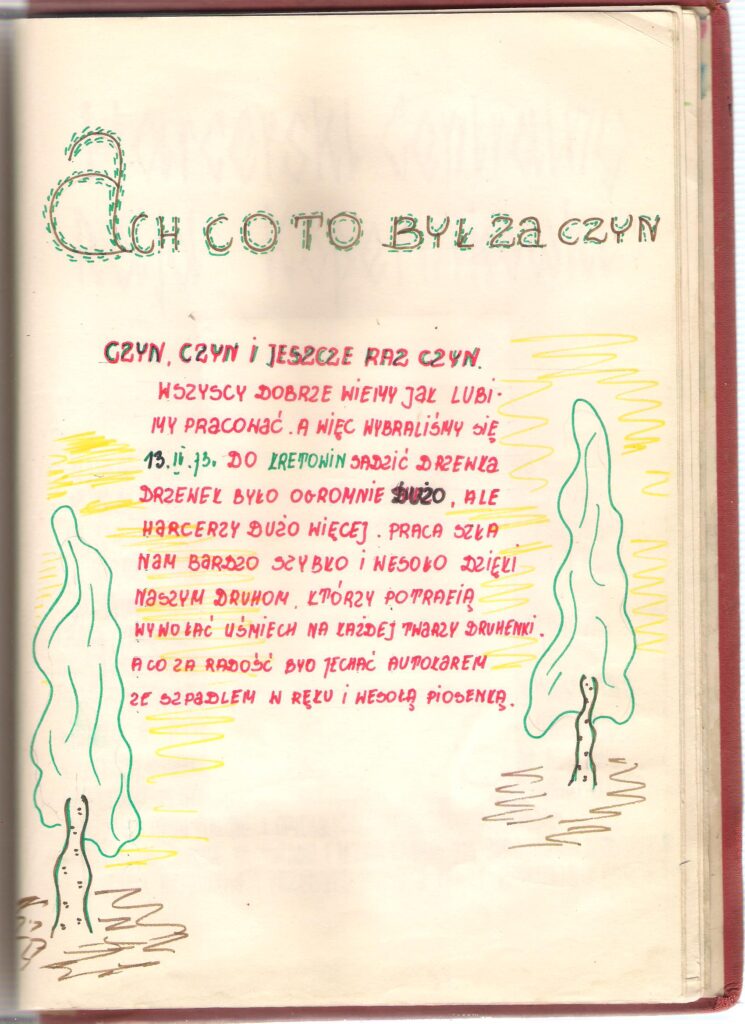 ACH CO TO BYŁ ZA CZYN
CZYN, CZYN I JESZCZE RAZ CZYN.
WSZYSCY DOBRZE WIEMY JAK LUBI-
MY PRACOWAĆ. A WIĘC WYBRALIŚMY SIĘ
13.IV.73. DO KRETOWIN SADZIĆ DRZEWKA
DRZEWEK BYŁO OGROMNIE DUŻO, ALE
HARCERZY DUŻO WIĘCEJ. PRACA SZŁA
NAM BARDZO SZYBKO I WESOŁO DZIĘKI
NASZYM DRUHOM, KTÓRZY POTRAFIĄ
WYWOŁAĆ UŚMIECH NA KAŻDEJ TWARZY DRUHENKI.
A CO ZA RADOŚĆ BYO JECHAĆ AUTOKAREM
ZE SZPADLEM W RĘKU I WESOŁĄ PIOSENKĄ.